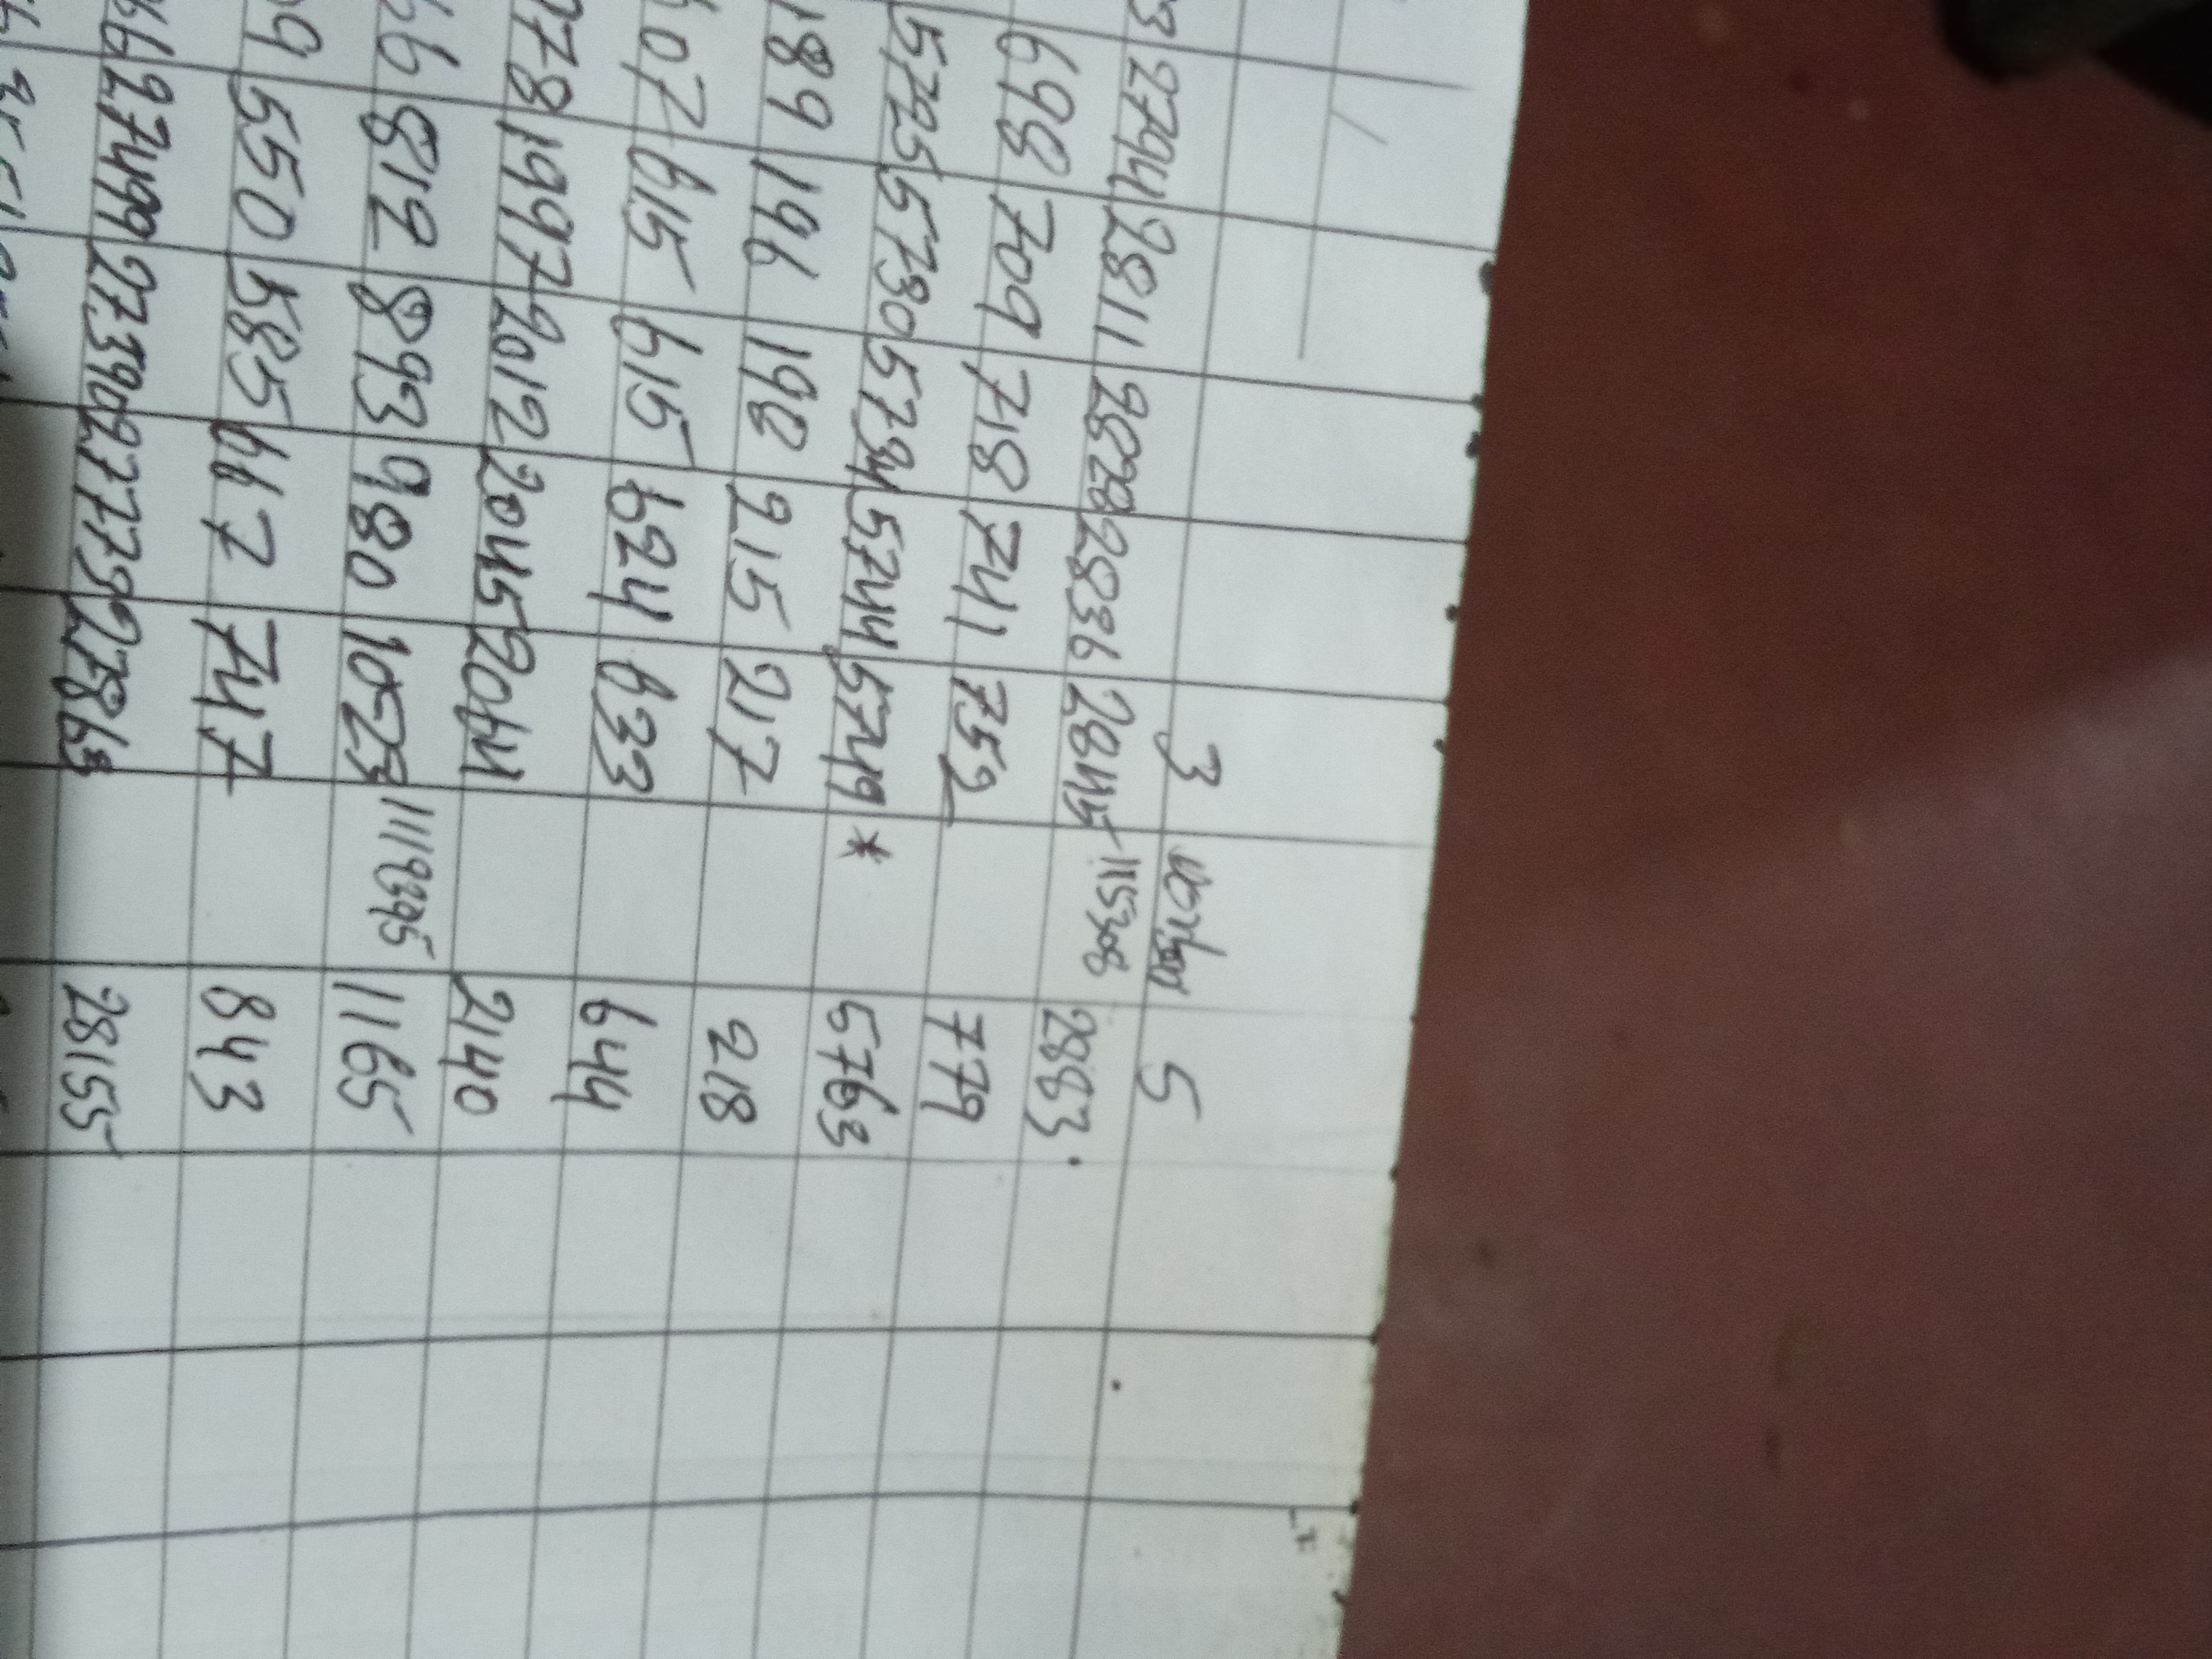 3 5
2794 2811 2828 2836 2845 1153308 2883
698 709 718 741 752 779
5725 5730 5734 5744 5749 * 5763
189 196 198 215 217 218
07 615 615 624 633 644
1997 2012 2045 2140
819 893 980 1023 1119395 1165
550 585 667 747 843
27499 27390 27779 27863 28155